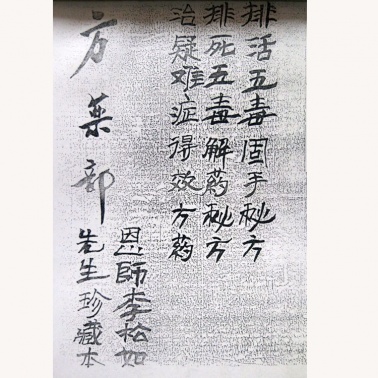 排活五毒固手秘方
排死五毒解药秘方
治疑难症得效方药
方药部
恩师李松如
先生珍藏本